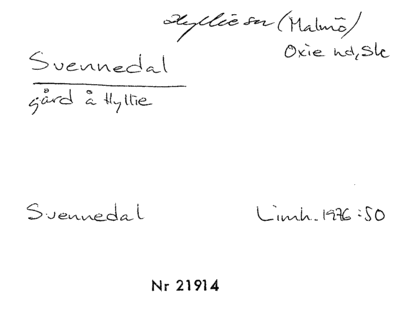 Hyllie sn (Malmö)
Oxie hd, Sk
Svennedal
gård å Hyllie
Svennedal Limh. 1976:50
Nr 21914